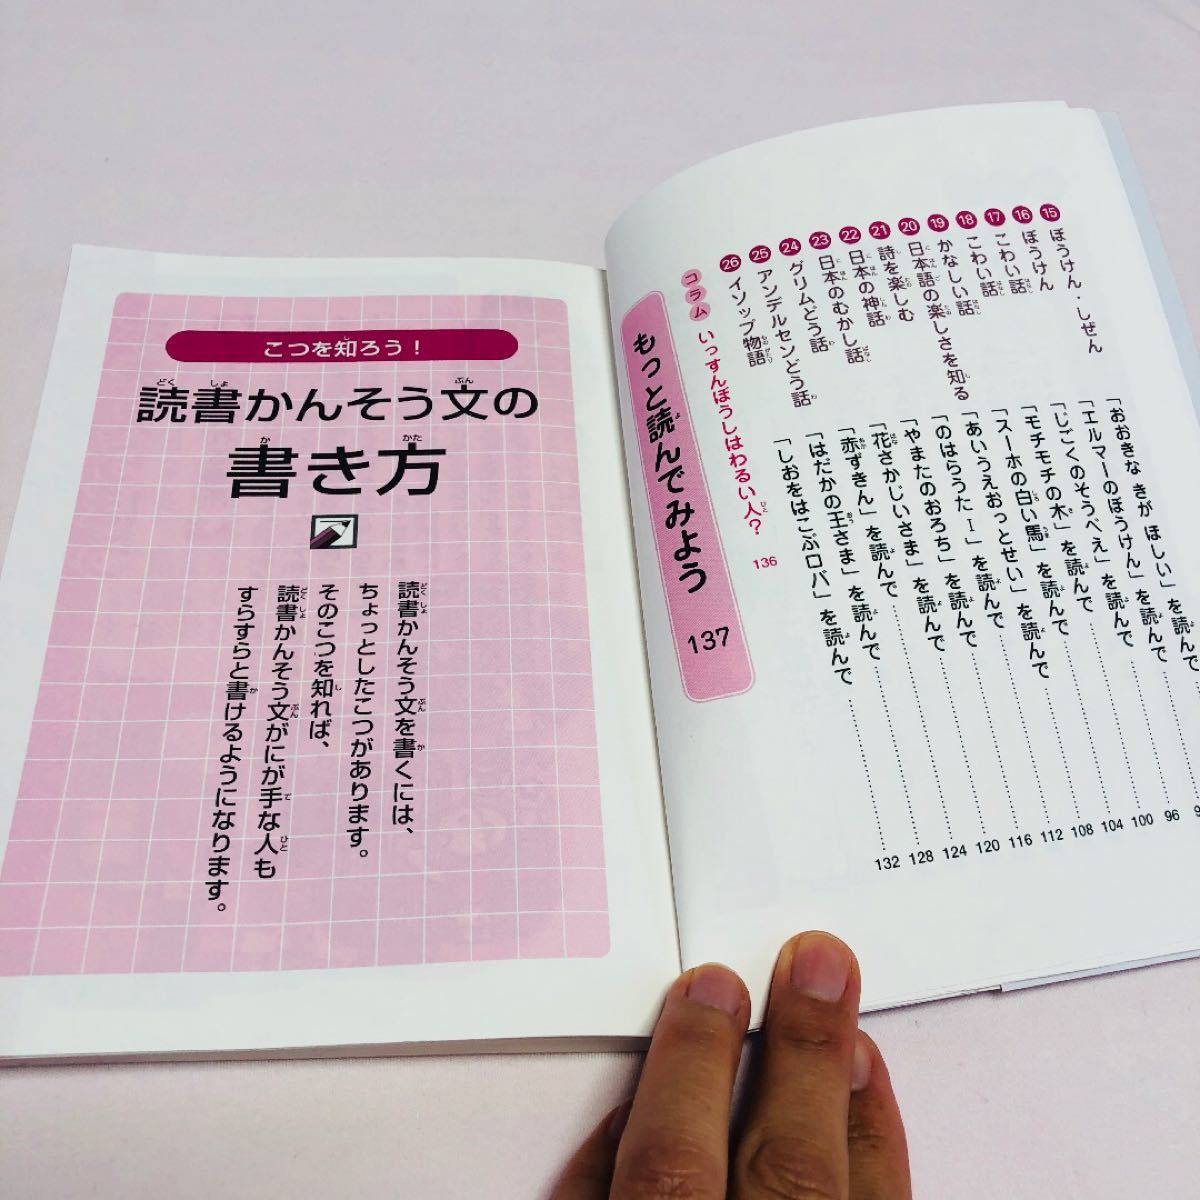 ⑮ ぼうけん・しぜん 「おおきな きが ほしい」を読んで
⑯ ぼうけん 「エルマーのぼうけん」を読んで
⑰ こわい話 「じごくのそうべえ」を読んで 96
⑱ こわい話 「モチモチの木」を読んで 100
⑲ かなしい話 「スーホの白い馬」を読んで 104
⑳ 日本語の楽しさを知る 「あいうえおっとせい」を読んで 108
㉑ 詩を楽しむ 「のはらうたⅠ」を読んで 112
㉒ 日本の神話 「やまたのおろち」を読んで 116
㉓ 日本のむかし話 「花さかじいさま」を読んで 120
㉔ グリムどう話 「赤ずきん」を読んで 124
㉕ アンデルセンどう話 「はだかの王さま」を読んで 128
㉖ イソップ物語 「しおをはこぶロバ」を読んで 132
コラム いっすんぼうしはわるい人？ 136
もっと読んでみよう 137
こつを知ろう！
読書かんそう文の
書き方
読書かんそう文を書くには、
ちょっとしたこつがあります。
そのこつを知れば、
読書かんそう文がにが手な人も
すらすらと書けるようになります。